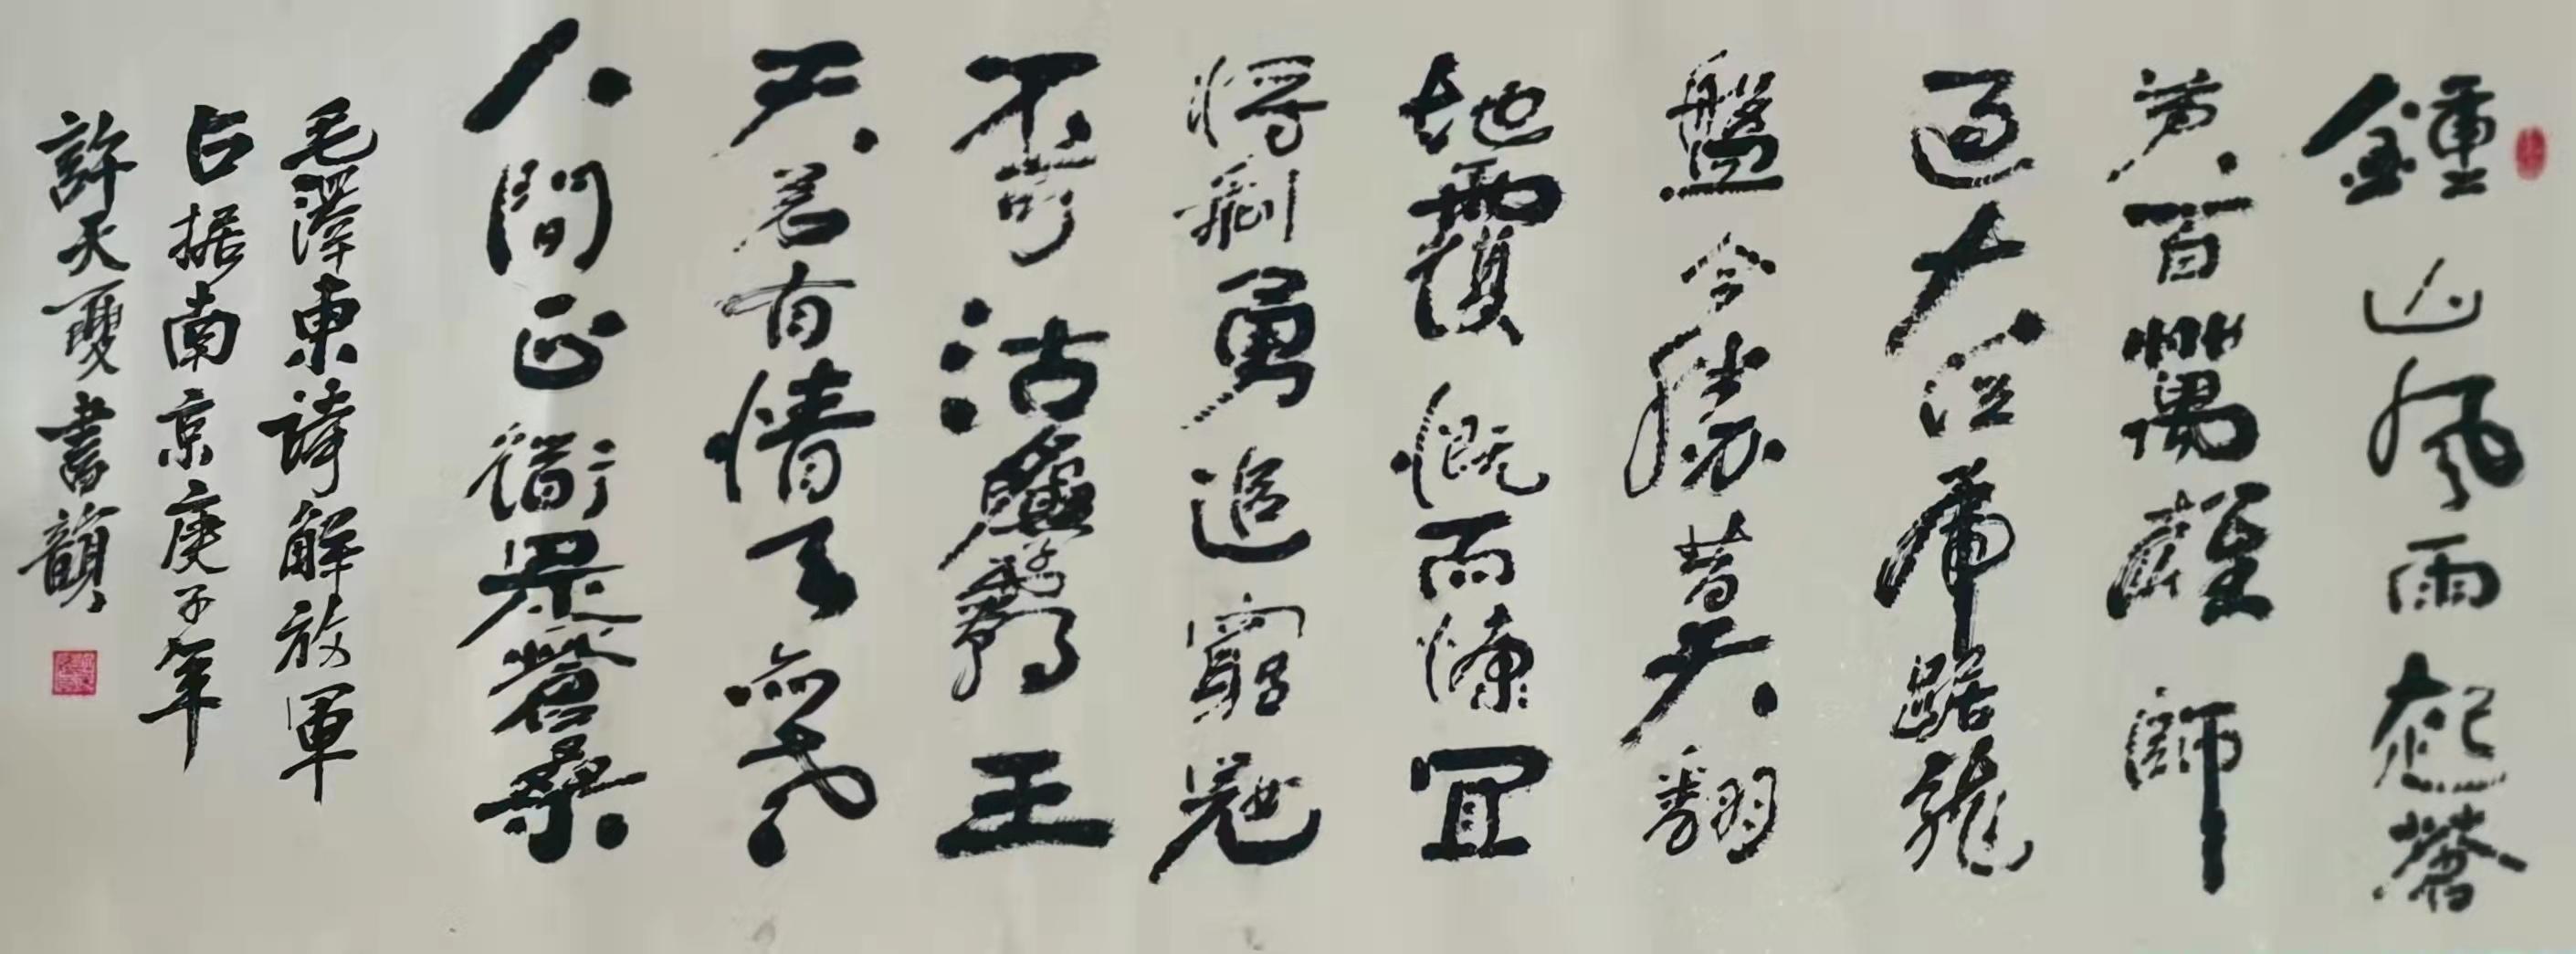 鍾山風雨起蒼
黄百萬雄師
過大江虎踞龍
盤今勝昔天翻
地覆慨而慷宜
將剩勇追窮寇
不可沽名學霸王
天若有情天亦老
人間正衟是蒼桑
毛澤東詩解放軍
占据南京庚子年
許天雙書韻